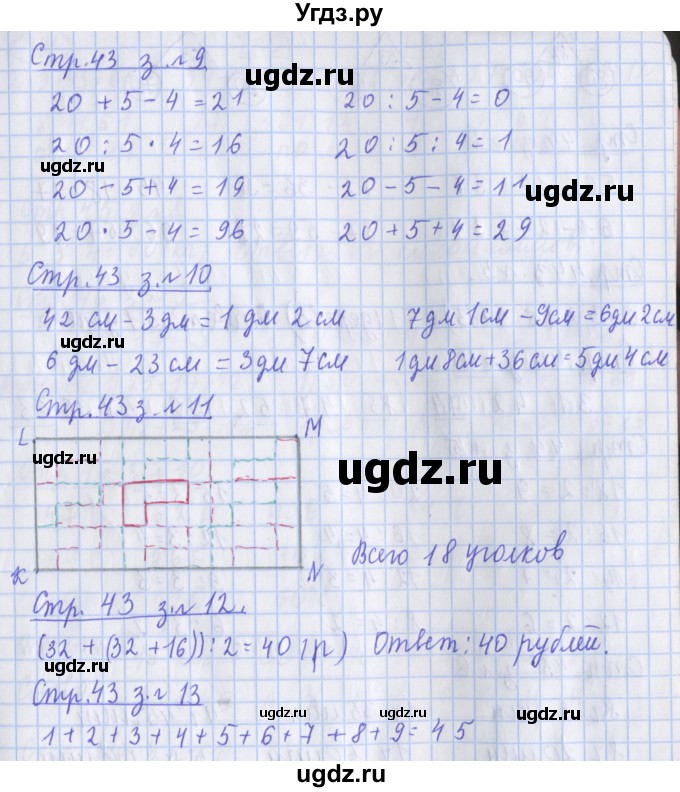 Угдз.ру
Стр.43 з.№9
20 + 5 - 4 = 21 20 : 5 - 4 = 0
ugdz.ru
20 : 5 · 4 = 16 20 : 5 : 4 = 1
ugdz.ru
20 - 5 + 4 = 19 20 - 5 - 4 = 11
ugdz.ru
20 · 5 - 4 = 96 20 + 5 + 4 = 29
Стр.43 з.№10
42 см - 3 дм = 1 дм 2 см 7 дм 1 см - 9 см = 6 дм 2 см
6 дм - 23 см = 3 дм 7 см 1 дм 8 см + 36 см = 5 дм 4 см
Стр.43 з.№11
L M
ugdz.ru
ugdz.ru
Всего 18 уголков
K N
Стр. 43 з.№12.
(32 + (32 + 16)) : 2 = 40 (р) Ответ: 40 рублей.
ugdz.ru
Стр.43 з.№13
ugdz.ru ugdz.ru
1 + 2 + 3 + 4 + 5 + 6 + 7 + 8 + 9 = 45
ugdz.ru
ugdz.ru